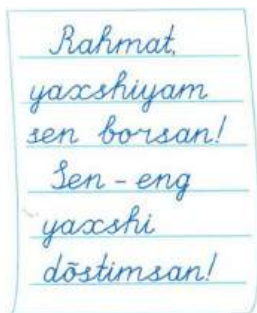 Rahmat,
yaxshiyam
sen borsan!
Sen - eng
yaxshi
dōstimsan!